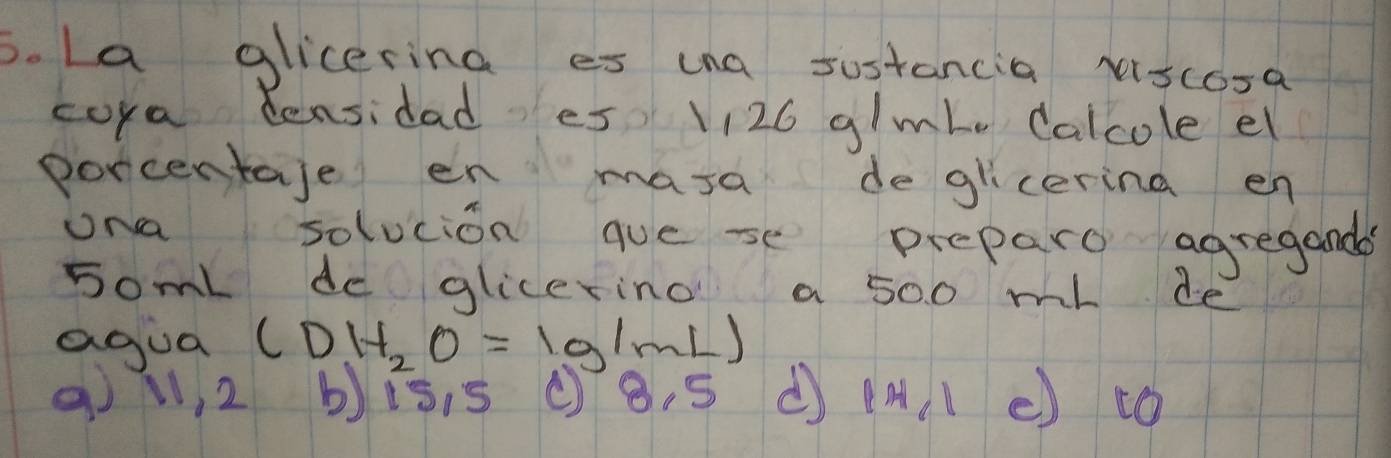 5. La glicerina es una sustancia viscosa
cuya densidad es 1,26 g/mL. Calcule el
porcentaje en masa de glicerina en
una solución que se preparo agregando
50mL de glicerina a 500 mL de
agua (DH₂O = 1g/mL)
a) 11,2 b) 15,5 c) 8,5 d) 14,1 e) 10